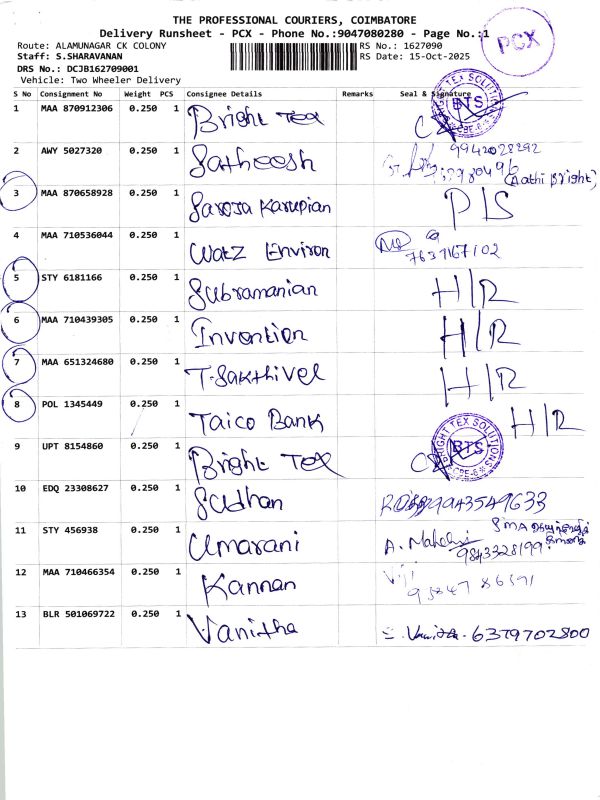 THE PROFESSIONAL COURIERS, COIMBATORE
Delivery Runsheet - PCX - Phone No.:9047080280 - Page No.:1
PCX
Route: ALAMUNAGAR CK COLONY RS No.: 1627090
Staff: S.SHARAVANAN RS Date: 15-Oct-2025
DRS No.: DCJB162709001
Vehicle: Two Wheeler Delivery
S No Consignment No Weight PCS Consignee Details Remarks Seal & Signature
1 MAA 870912306 0.250 1 Bright Tex BRIGHT TEX SOLUTIONS BTS CBE-6
2 AWY 5027320 0.250 1 Satheesh 9942028292
(Aathi Bright)
3 MAA 870658928 0.250 1 Saroja Karupian P/S
4 MAA 710536044 0.250 1 Watz Environ
7637167102
5 STY 6181166 0.250 1 Subramanian H/R
6 MAA 710439305 0.250 1 Invention H/R
7 MAA 651324680 0.250 1 T.Sakthivel H/R
8 POL 1345449 0.250 1 Taico Bank H/R
9 UPT 8154860 0.250 1 Bright Tex BRIGHT TEX SOLUTIONS BTS CBE-6
10 EDQ 23308627 0.250 1 Sudhan 9943549633
11 STY 456938 0.250 1 Umarani A. 9843328199
12 MAA 710466354 0.250 1 Kannan Viji
13 BLR 501069722 0.250 1 Vanitha 6379702800